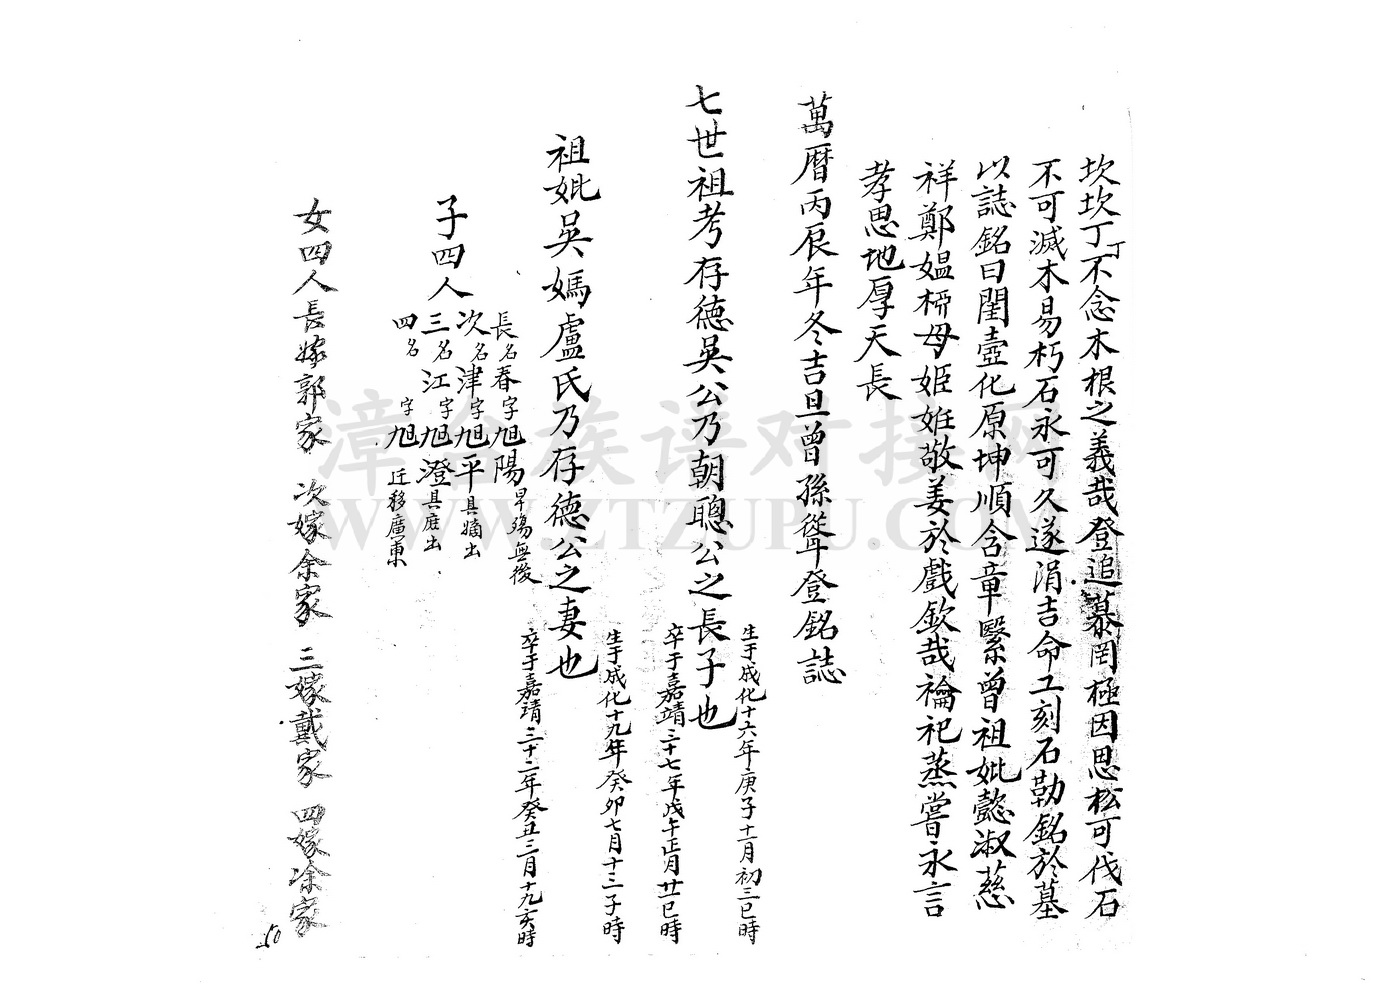 坎坎丁丁不念木根之義哉登追慕罔極因思松可伐石
不可滅木易朽石永可久遂涓吉命工刻石勒銘於墓
以誌銘曰閨壼化原坤順含章繄曾祖妣懿淑慈
祥鄭媪柳母姬姙敬姜於戲欽哉禴祀蒸嘗永言
孝思地厚天長
萬曆丙辰年冬吉旦曾孫聳登銘誌
七世祖考存德吳公乃朝聰公之長子也
生于成化十六年庚子十一月初三巳時
卒于嘉靖三十七年戊午正月廿巳時
祖妣吳媽盧氏乃存德公之妻也
生于成化十九年癸卯七月十三子時
卒于嘉靖三十二年癸丑三月十九亥時
子四人
長名春字旭陽早殤無後
次名津字旭平具嫡出
三名江字旭澄具庶出
四名 字旭 迁移廣東
女四人長嫁郭家 次嫁余家 三嫁戴家 四嫁涂家
50
漳台族谱对接网
WWW.ZTZUPU.COM